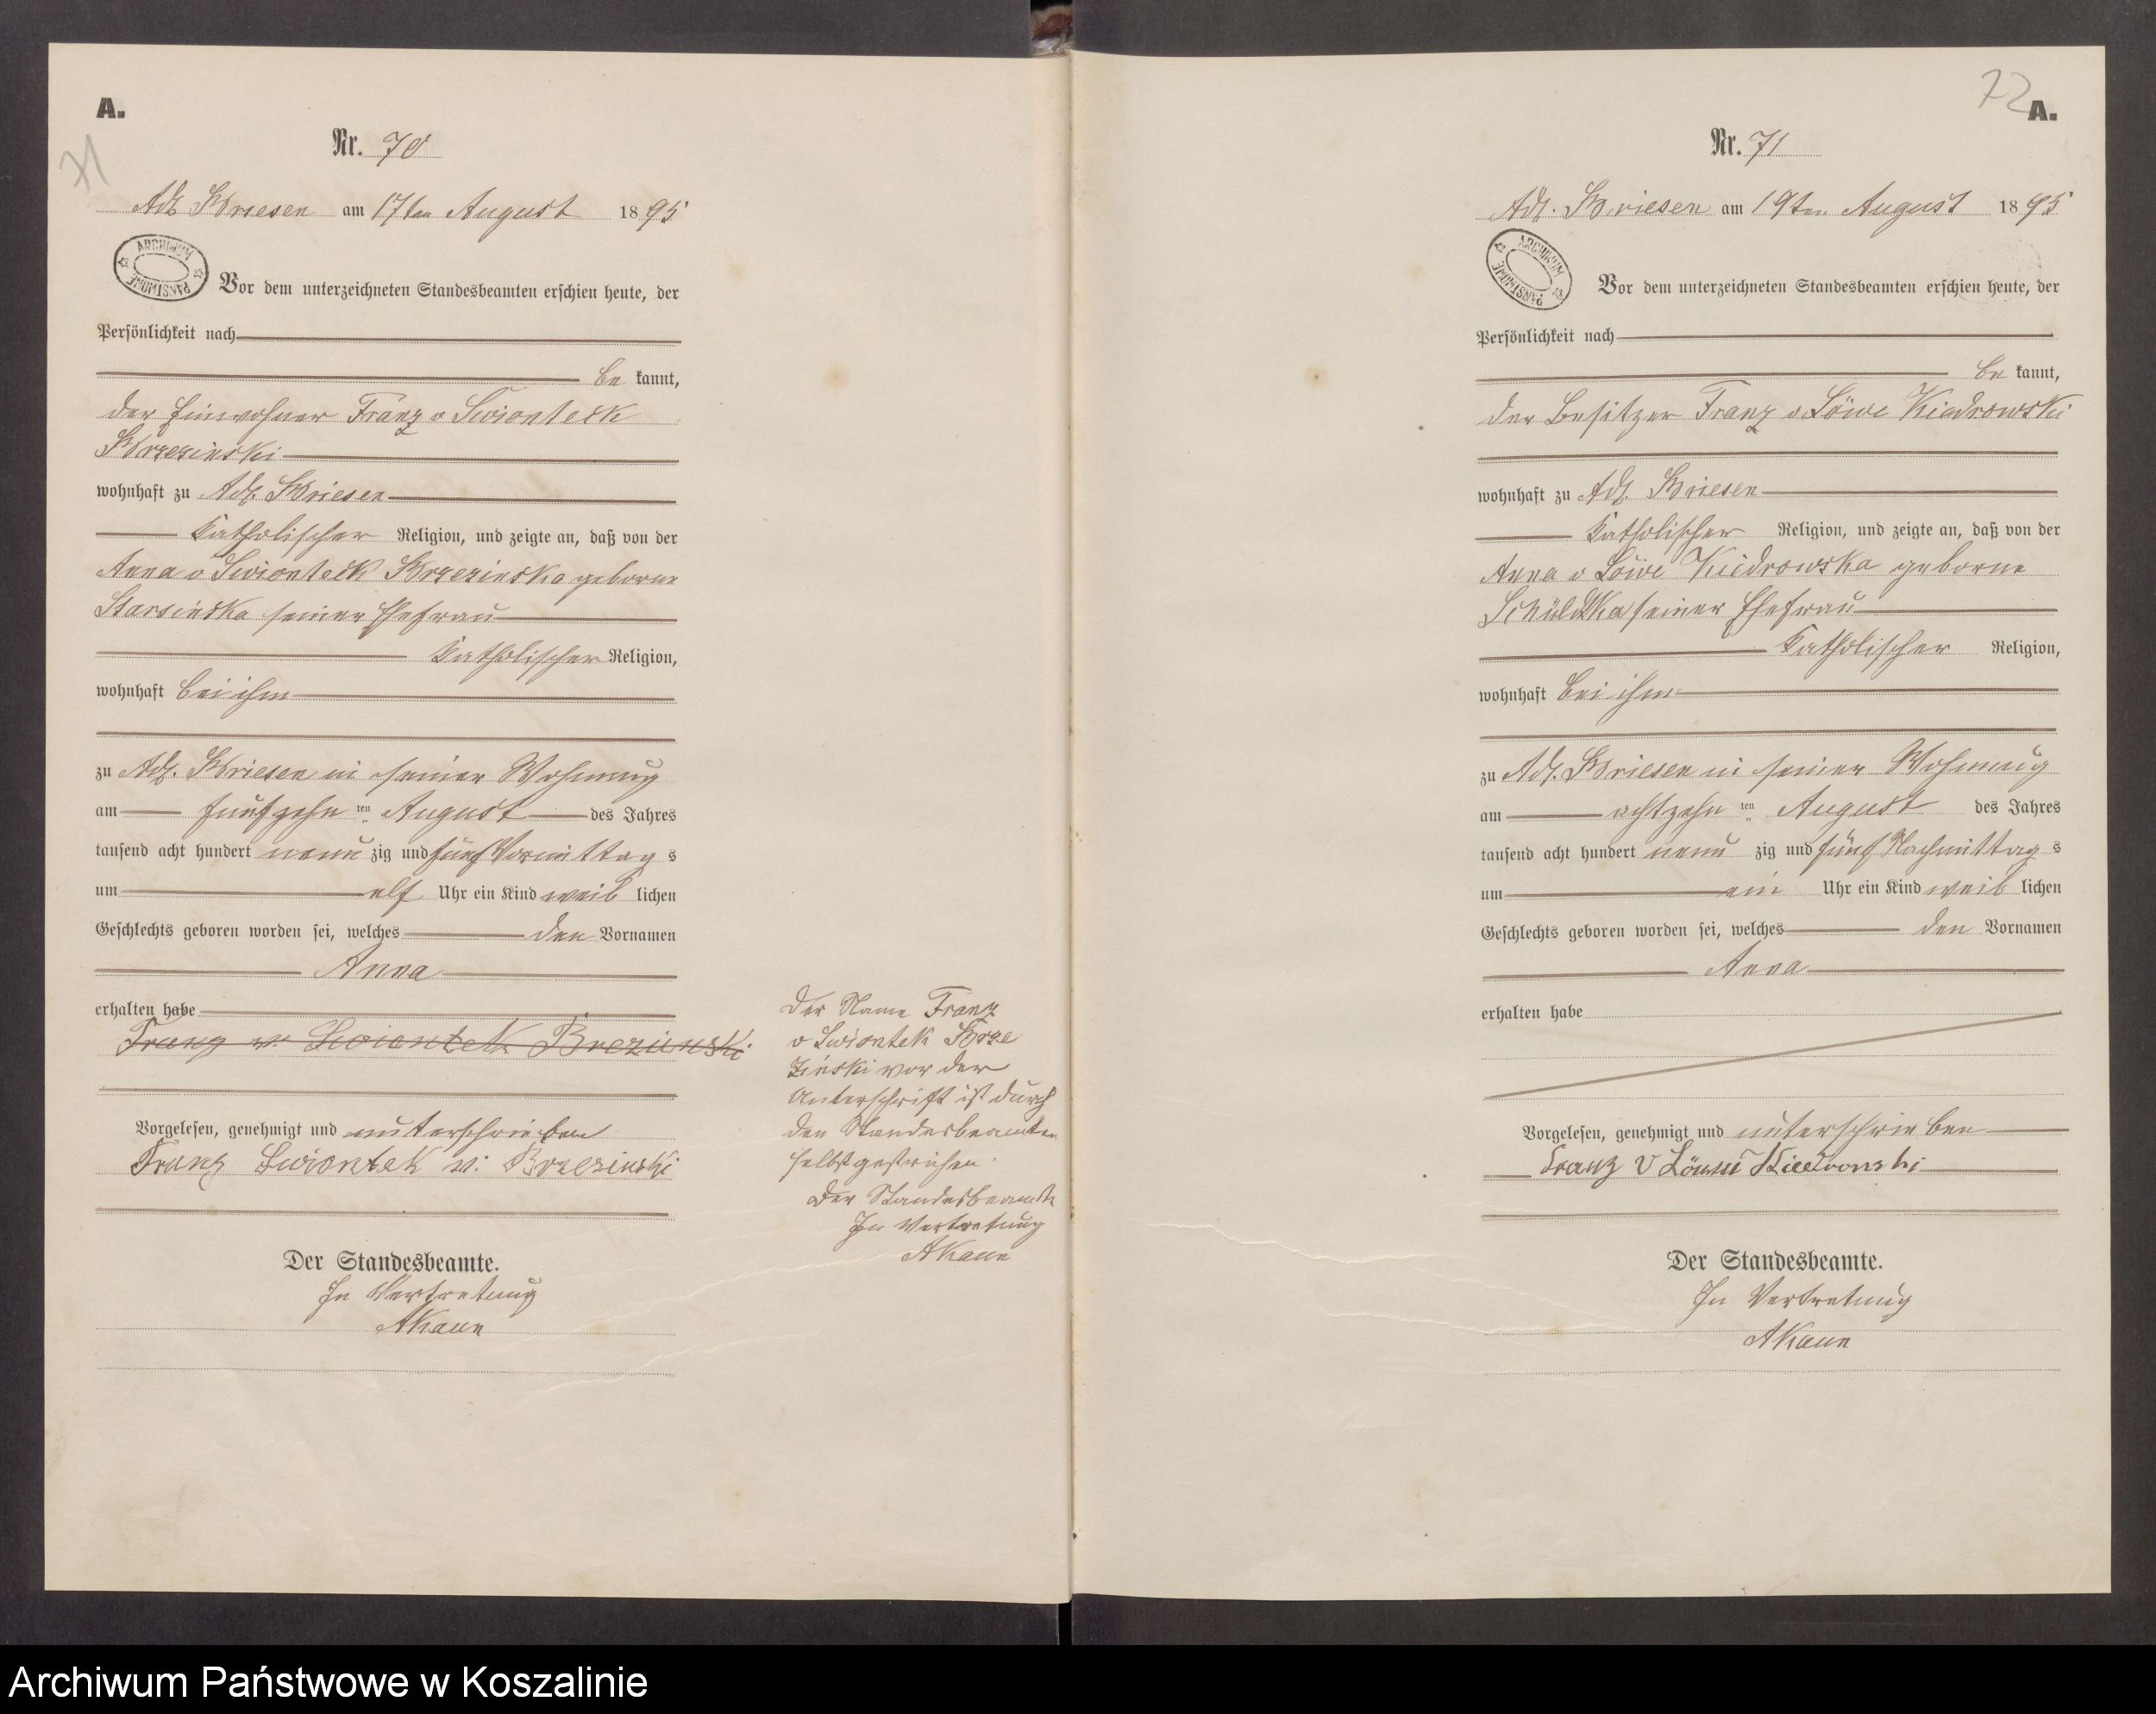 A.
71
Nr. 70
Adl Briesen am 17ten August 1895
ARCHIWUM PAŃSTWOWE
Vor dem unterzeichneten Standesbeamten erschien heute, der
Persönlichkeit nach
be kannt,
der Einwohner Franz v Swiontek
Brzezinski
wohnhaft zu Adl. Briesen
katholischer Religion, und zeigte an, daß von der
Anna v Swiontek Brzezinska geborne
Starsinska seiner Ehefrau
katholischer Religion,
wohnhaft bei ihm
zu Adl. Briesen in seiner Wohnung
am fünfzehn ten August des Jahres
tausend acht hundert neun zig und fünf Vormittag s
um elf Uhr ein Kind weib lichen
Geschlechts geboren worden sei, welches den Vornamen
Anna
erhalten habe
Franz v. Swiontek Brezinski
Vorgelesen, genehmigt und unterschrieben
Franz Swiontek v: Brzezinski
Der Standesbeamte.
In Vertretung
AKaun
Der Name Franz
v Swiontek Brze
zinski vor der
Unterschrift ist durch
den Standesbeamten
selbst gestrichen.
Der Standesbeamte
In Vertretung
AKaun
72
A.
Nr. 71
Adl. Briesen am 19ten August 1895
ARCHIWUM PAŃSTWOWE
Vor dem unterzeichneten Standesbeamten erschien heute, der
Persönlichkeit nach
be kannt,
der Besitzer Franz v Löwe Kiedrowski
wohnhaft zu Adl. Briesen
katholischer Religion, und zeigte an, daß von der
Anna v Löwe Kiedrowska geborne
seiner Ehefrau
katholischer Religion,
wohnhaft bei ihm
zu Adl. Briesen in seiner Wohnung
am achtzehn ten August des Jahres
tausend acht hundert neun zig und fünf Nachmittag s
um ein Uhr ein Kind weib lichen
Geschlechts geboren worden sei, welches den Vornamen
Anna
erhalten habe
Vorgelesen, genehmigt und unterschrieben
Franz v Kiedrowski
Der Standesbeamte.
In Vertretung
AKaun
Archiwum Państwowe w Koszalinie